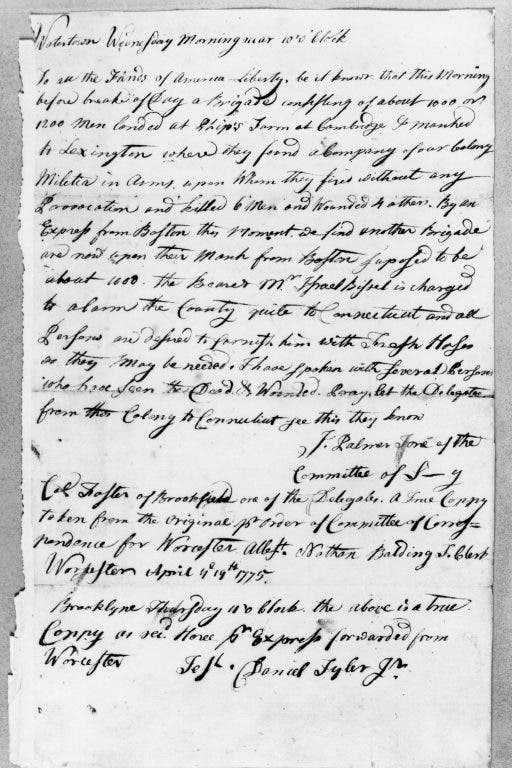 Watertown Wednesday Morning near 10 o'Clock
To all the Friends of America Liberty, be it known that this Morning
before breake of Day a Brigade consisting of about 1000 or
1200 Men landed at Phip's Farm at Cambridge & marched
to Lexington where they found a Company of our Colony
Militia in Arms, upon Whom they fired without any
Provocation and killed 6 Men and Wounded 4 others. By an
Express from Boston this Moment, we find another Brigade
are now upon their March from Boston supposed to be
about 1000. The Bearer Mr Israel Bissel is charged
to alarm the Country quite to Connecticut and all
Persons are desired to furnish him with Fresh Horses
as they may be needed. I have spoken with Several Persons
who have seen the Dead & Wounded. Pray let the Delegates
from this Colony to Connecticut see this they know
J. Palmer one of the
Committee of S—y
Col. Foster of Brookfield one of the Delegates. A True Coppy
taken from the Original pr Order of Committee of Corres=
pondence for Worcester Attest. Nathan Balding T. Clerk
Worcester April 19th 1775.
Brooklyne Thursday 11 o Clock the above is a true
Coppy as recd. here pr Express forwarded from
Worcester Test. Daniel Tyler Jr.